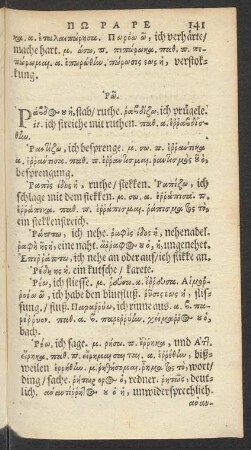 ΠΩ ΡΑ ΡΕ 141
κα. α. ἐταλαιπώρησα. Πωρόω ῶ, ich verhärte/
mache hart. μ. ώσω. π. πεπώρωκα. παθ. π. πεπώρωμαι.
α. ἐπωρώθην. πώρωσις εως ἡ, verstokkung.
Ῥῶ.
Ράβδος ου ἡ, stab/ ruthe. ῥαβδίζω, ich prügele.
it. ich streiche mit ruthen. παθ. α. ἐῤῥαβδίσθην.
Ραντίζω, ich besprenge. μ. σω. π. ἐῤῥάντικα
α. ἐῤῥάντισα. παθ. π. ἐῤῥάντισμαι. ῥαντισμὸς οῦ ὁ,
besprengung.
Ραπὶς ίδος ἡ, ruthe/ stekken. Ραπίζω, ich
schlage mit dem stekken. μ. σω. α. ἐῤῥάπισα. π.
ἐῤῥάπικα. παθ. π. ἐῤῥάπισμαι. ῥάπισμα τος τὸ,
ein stekkenstreich.
Ράπτω, ich nehe. ῥαφὶς ίδος ἡ, nehenadel.
ῥαφὴ ῆς ἡ, eine naht. ἄραφος ου ὁ, ungenehet.
Επιῤῥάπτω, ich nehe an oder auf/ ich flikke an.
Ρέδη ης ἡ, ein kutsche/ karete.
Ρέω, ich fliesse. μ. ῥεύσω. α. ἔῤῥευσα. Αἱμοῤῥοέω
ῶ, ich habe den blutfluß. ῥύσις εως ἡ, fliessung/
fluß. Παραῤῥύω, ich rinne aus. π.
παθ. α. παρεῤῥύην. χείμαῤῥος ου ὁ,
bach.
Ρέω, ich sage. μ. ῥήσω. π. εἴρηκα, und Ατλ.
εἴρηκα. παθ. π. εἴρημαι σαι ται. α. ἐῤῥέθην, bißweilen
ἐῤῥήθην. μ. ῥηθήσομαι. ῥῆμα τος τὸ, wort/
ding/ sache. ῥήτωρ ορος ὁ, redner. ῥητῶς, deutlich.
ἀναντίῤῥητος ου ὁ ἡ, unwidersprechlich.